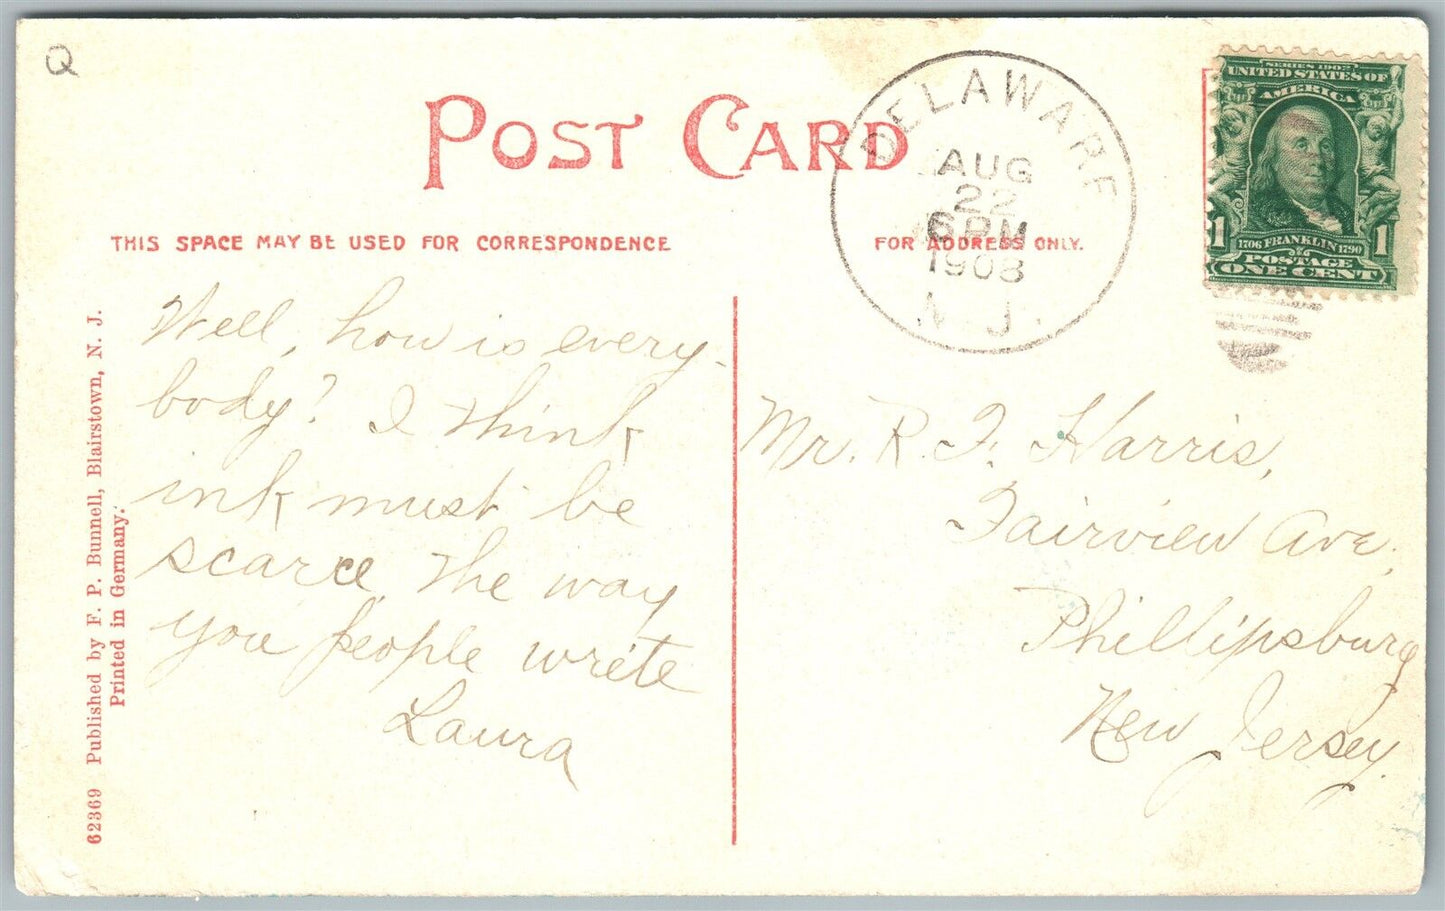 Q
POST CARD
THIS SPACE MAY BE USED FOR CORRESPONDENCE
FOR ADDRESS ONLY.
DELAWARE
AUG
22
6 PM
1908
N.J.
SERIES 1902
UNITED STATES OF
AMERICA
1 1
1706 FRANKLIN 1790
AND
POSTAGE
ONE CENT
Well, how is every-
body? I think
ink must be
scarce the way
you people write
Laura
Mr. R. F. Harris,
Fairview Ave,
Phillipsburg
New Jersey.
62369 Published by F. P. Bunnell, Blairstown, N. J.
Printed in Germany.